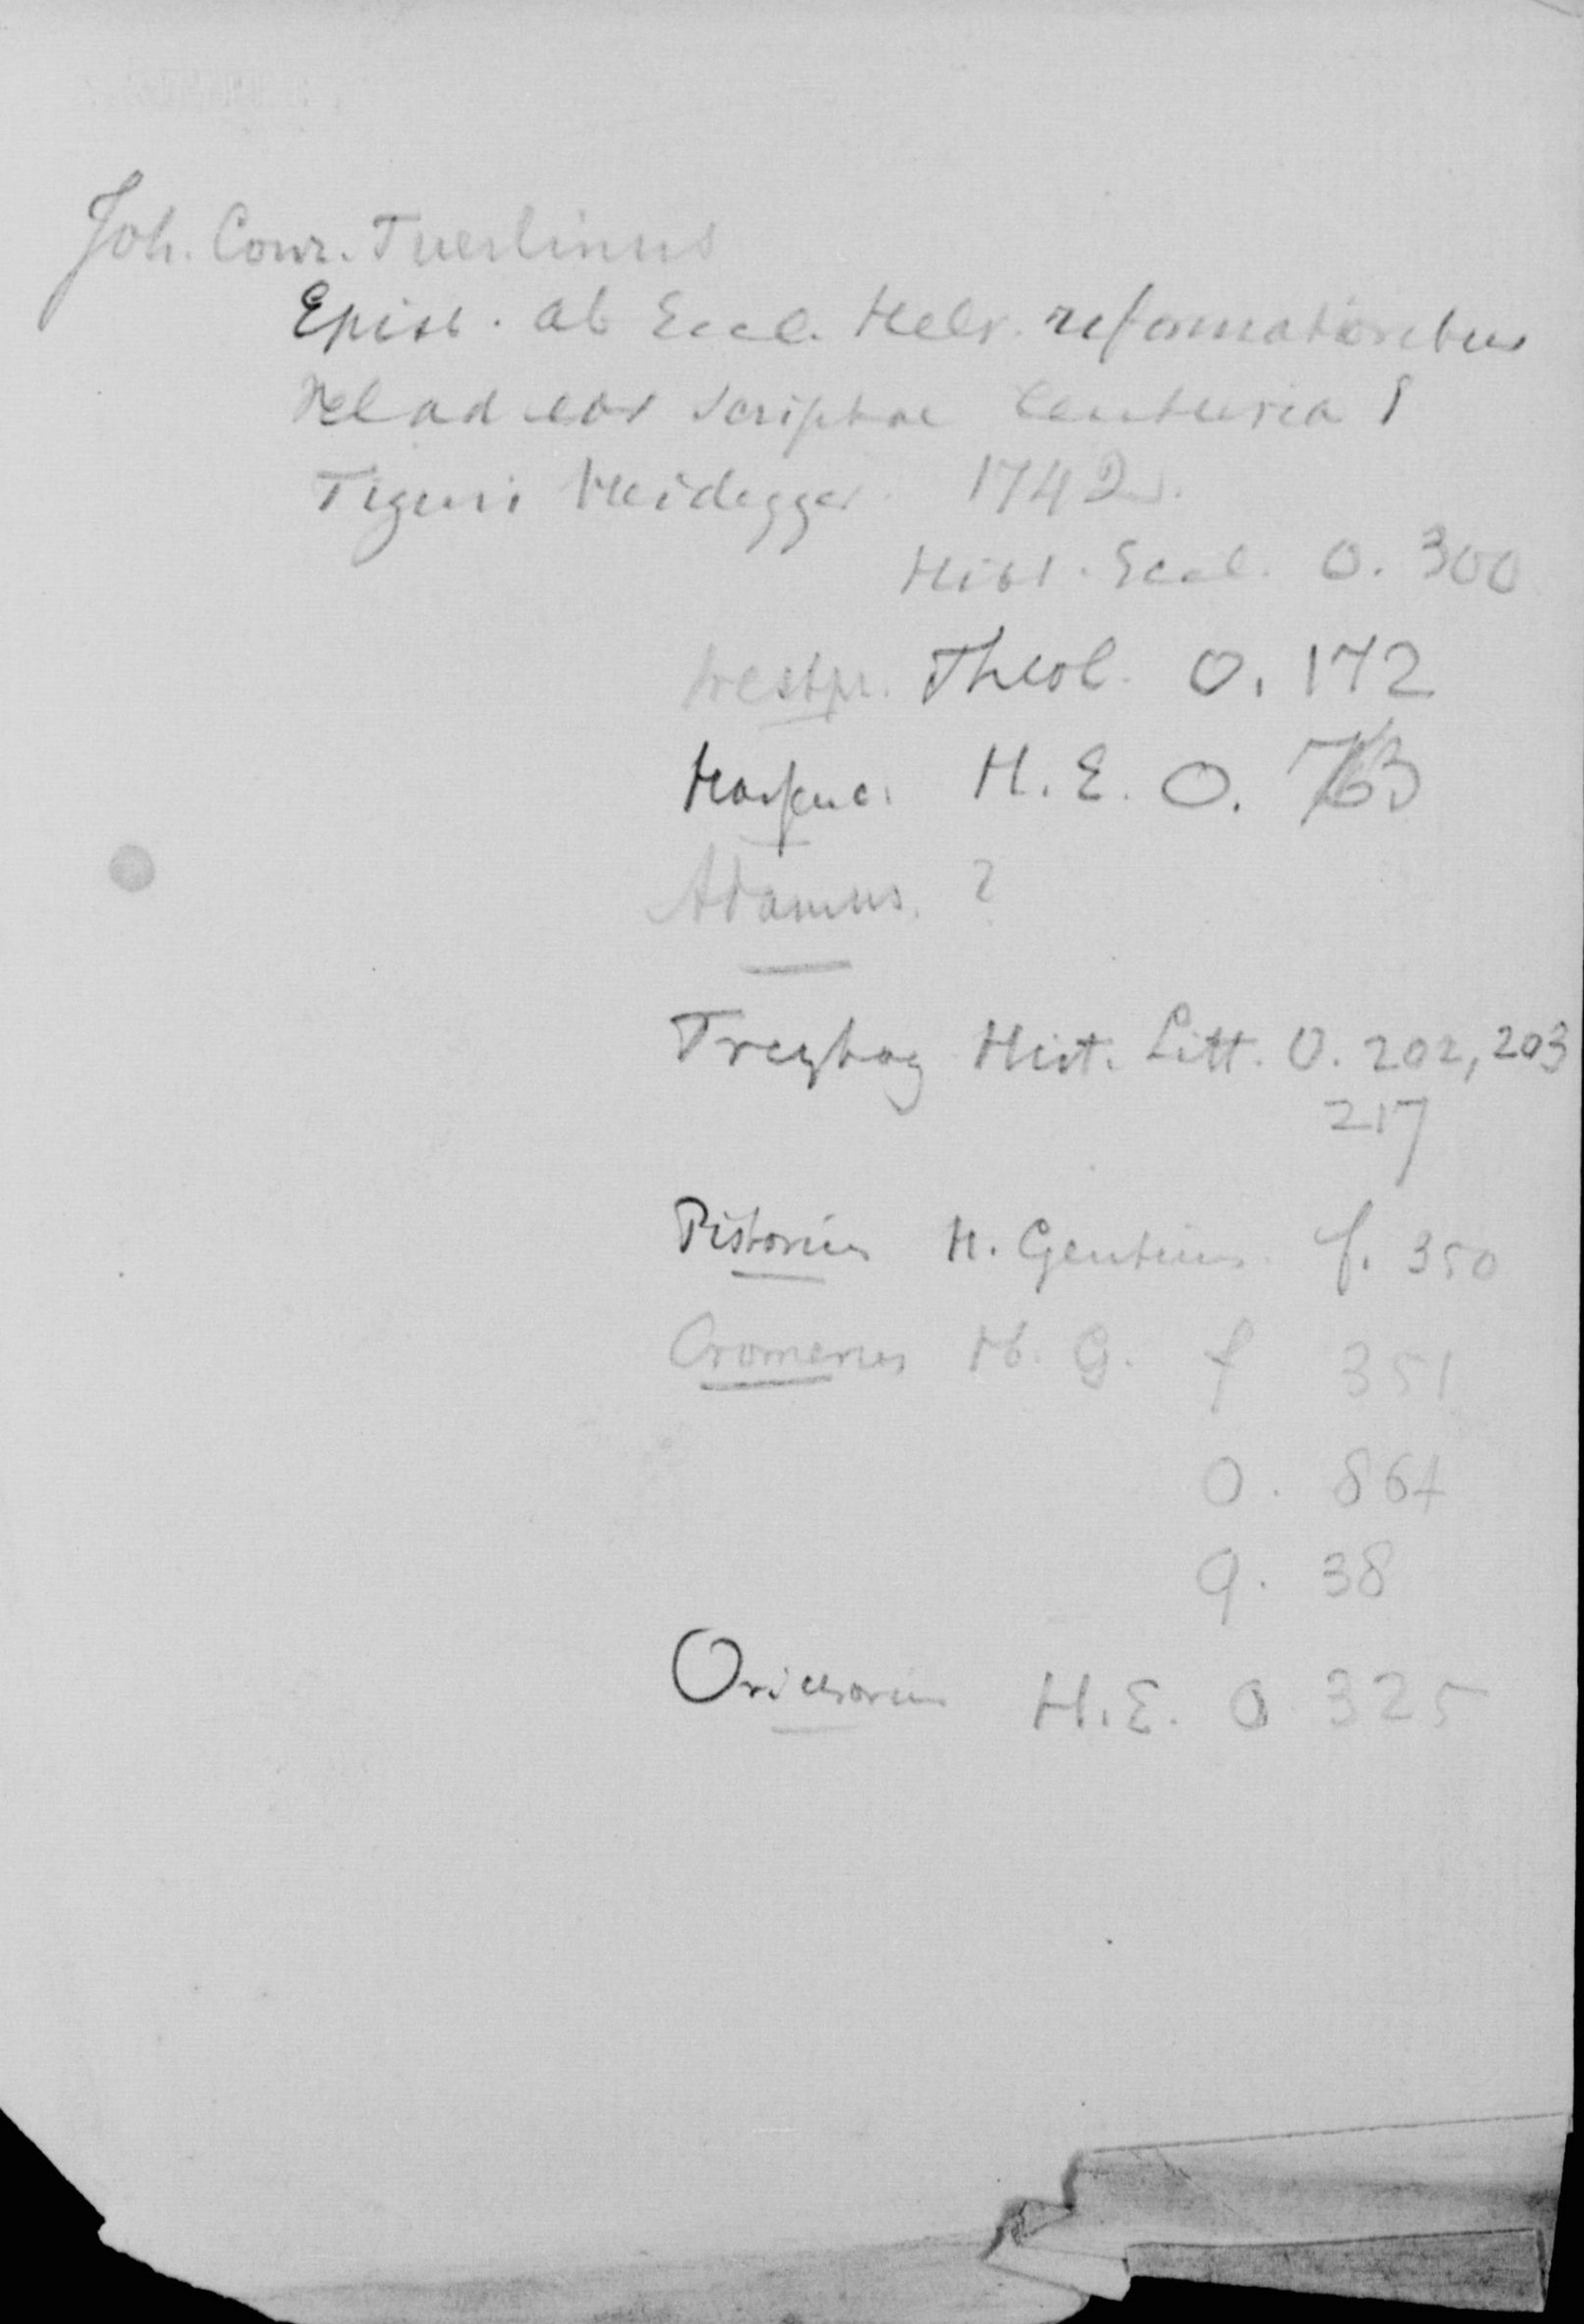 Joh. Conr. Fuerlinus
Epist. ab Eccl. Helv. reformatoribus
vel ad eos scriptae Centuria I
Tiguri Heidegger. 1742.
Hist. Eccl. O. 300
Westpr. Theol. O. 172
H. E. O. 763
Adamus. ?
Freytag Hist. Litt. O. 202, 203
217
Pistorius H. Gentium. f. 350
Cromerus H. G. f 351
O. 864
q. 38
Orichovius H.E. O 325